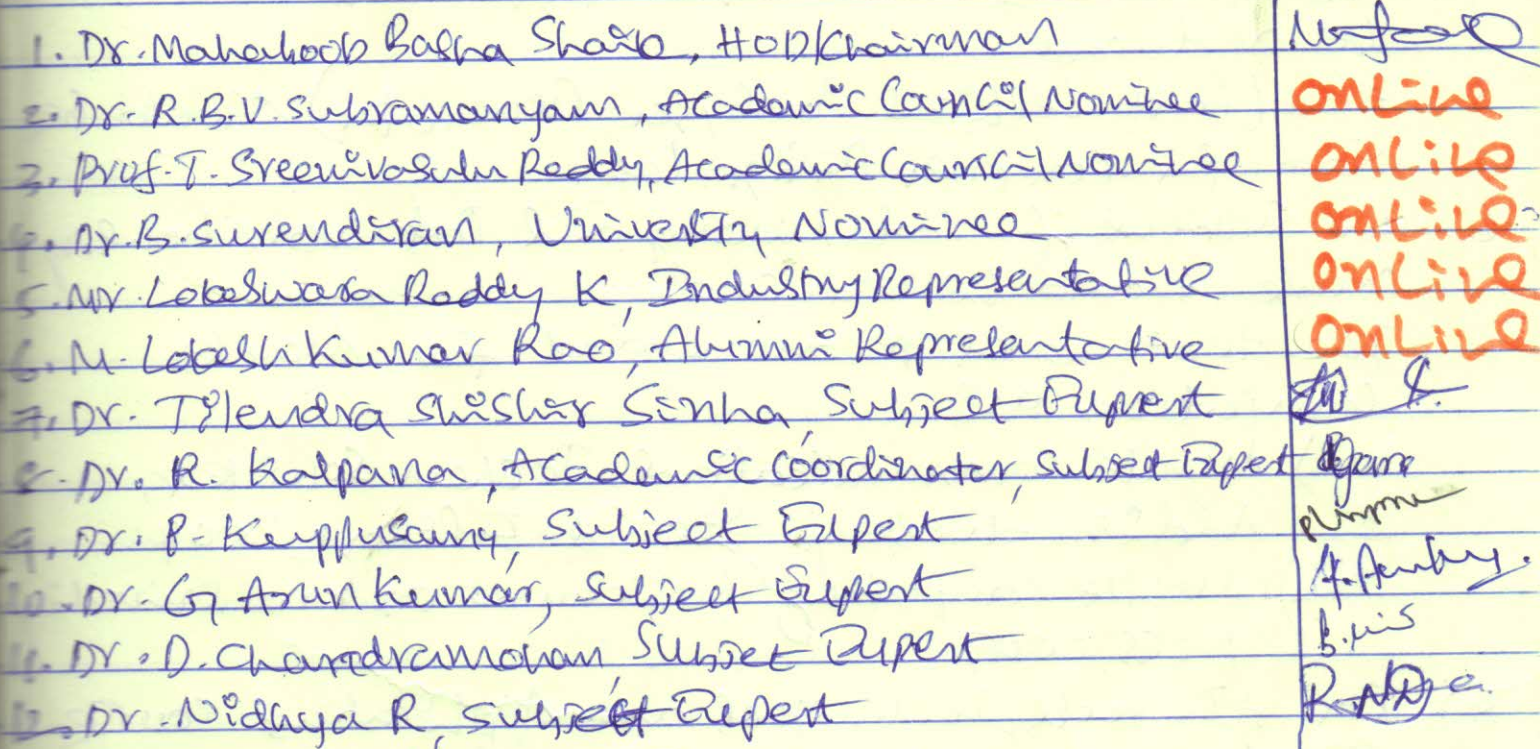 1. Dr. Mahaboob Basha Shaik, HOD/Chairman
2. Dr. R.B.V. Subramanyam, Academic Council Nominee Online
3. Prof. T. Sreenivasulu Reddy, Academic Council Nominee Online
4. Dr. B. Surendiran, University Nominee Online
5. Mr. Lokeswara Reddy K, Industry Representative Online
6. M. Lokesh Kumar Rao, Alumni Representative Online
7. Dr. Tilendra Shishir Sinha, Subject Expert
8. Dr. R. Kalpana, Academic Coordinator, Subject Expert
9. Dr. P. Kuppusamy, Subject Expert
10. Dr. G Arun Kumar, Subject Expert
11. Dr. D. Chandramohan, Subject Expert
12. Dr. Nidhya R, Subject Expert